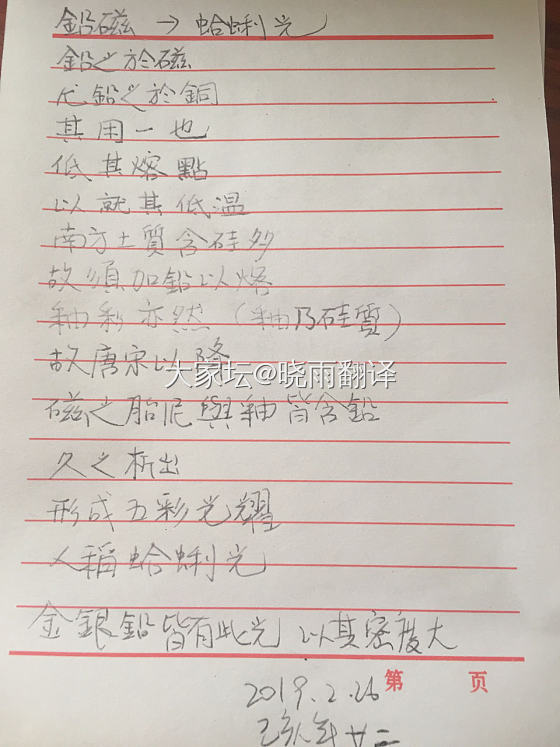 鉛磁 → 蛤蜊光
鉛之於磁
尤鉛之於銅
其用一也
低其熔點
以就其低溫
南方土質含硅多
故須加鉛以熔
釉彩亦然（釉乃硅質）
故唐宋以降
大家坛@晓雨翻译
磁之胎泥與釉皆含鉛
久之析出
形成五彩光耀
人稱蛤蜊光
金銀鉛皆有此光 以其密度大
第 页
2019.2.26
己亥年廿二